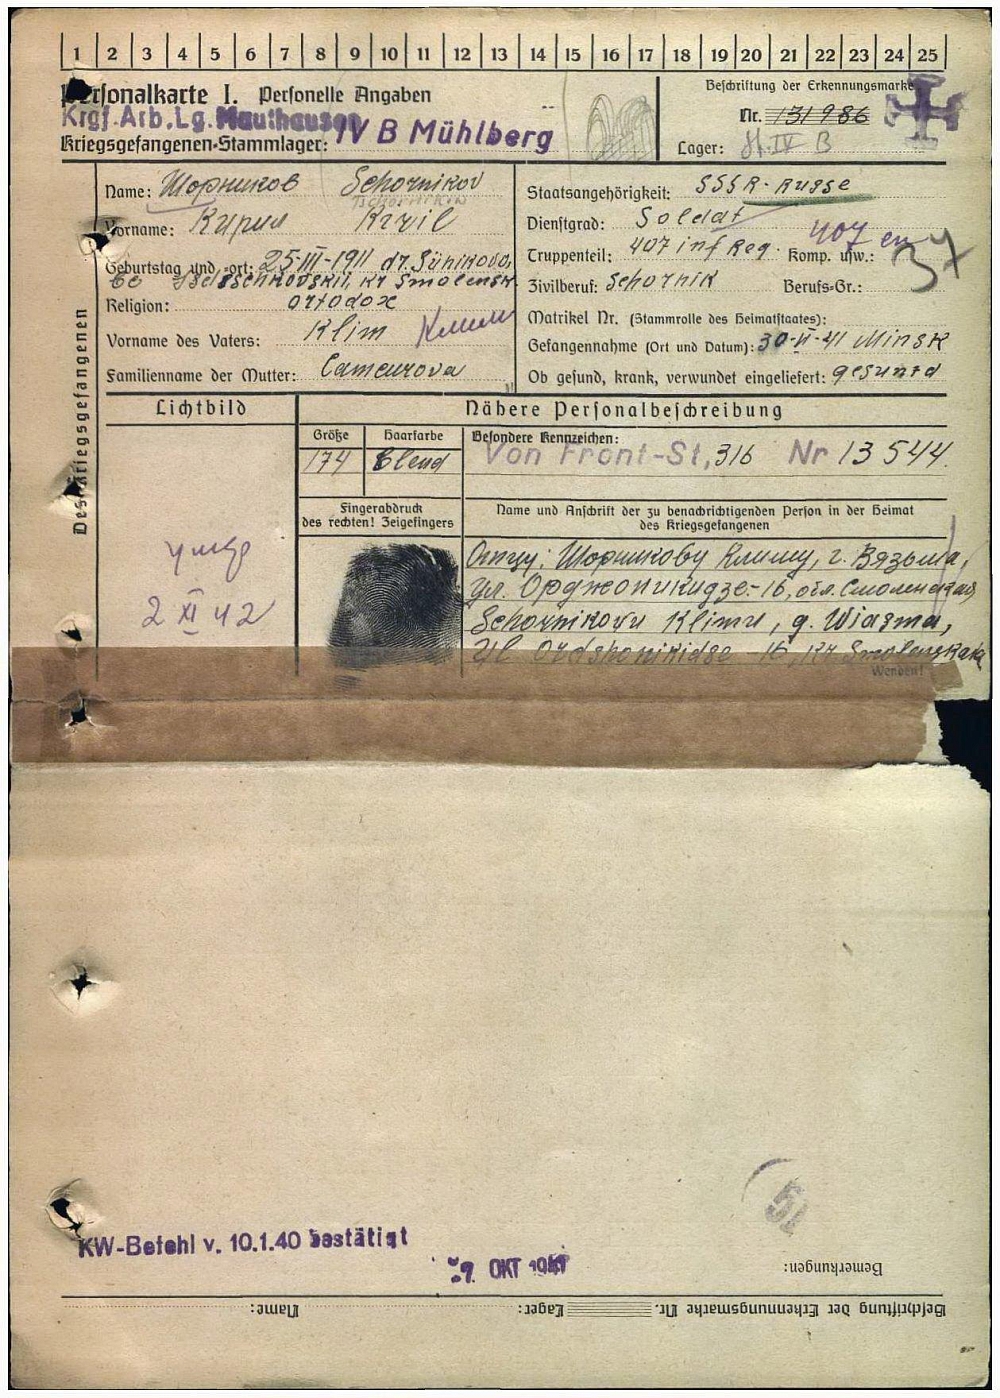 1 2 3 4 5 6 7 8 9 10 11 12 13 14 15 16 17 18 19 20 21 22 23 24 25
Personalkarte I. Personelle Angaben
Krgf. Arb. Lg. Mauthausen
Kriegsgefangenen-Stammlager: IV B Mühlberg
Beschriftung der Erkennungsmarke
Nr. 131986
Lager: St. IV B
Des Kriegsgefangenen
Name: Шорников Schornikov
Vorname: Кирил Kiril
Geburtstag und -ort: 25-III-1911 dr.
kr Smolensk
Religion: ortodox
Vorname des Vaters: Klim Клим
Familienname der Mutter:
Staatsangehörigkeit: SSSR-Russe
Dienstgrad: Soldat
Truppenteil: 407 inf Reg. Komp. usw.:
407
Zivilberuf: Schornik Berufs-Gr.:
Matrikel Nr. (Stammrolle des Heimatstaates):
Gefangennahme (Ort und Datum): 30-VI-41 Minsk
Ob gesund, krank, verwundet eingeliefert: gesund
Lichtbild
умер
2 XI 42
Nähere Personalbeschreibung
Größe Haarfarbe Besondere Kennzeichen:
174 blond Von Front-St, 316 Nr 13544.
Fingerabdruck
des rechten! Zeigefingers
Name und Anschrift der zu benachrichtigenden Person in der Heimat
des Kriegsgefangenen
Отцу: Шорникову Климу, г. Вязьма,
ул. Орджоникидзе-16, обл. Смоленская
Schornikovu Klimu, g. Wiasma,
Ul Ordshonikidse -16, Kr. Smolenskaka
Wenden!
51
KW-Befehl v. 10.1.40 bestätigt
OKT 1941
Bemerkungen:
Name: Lager: Beschriftung der Erkennungsmarke Nr.